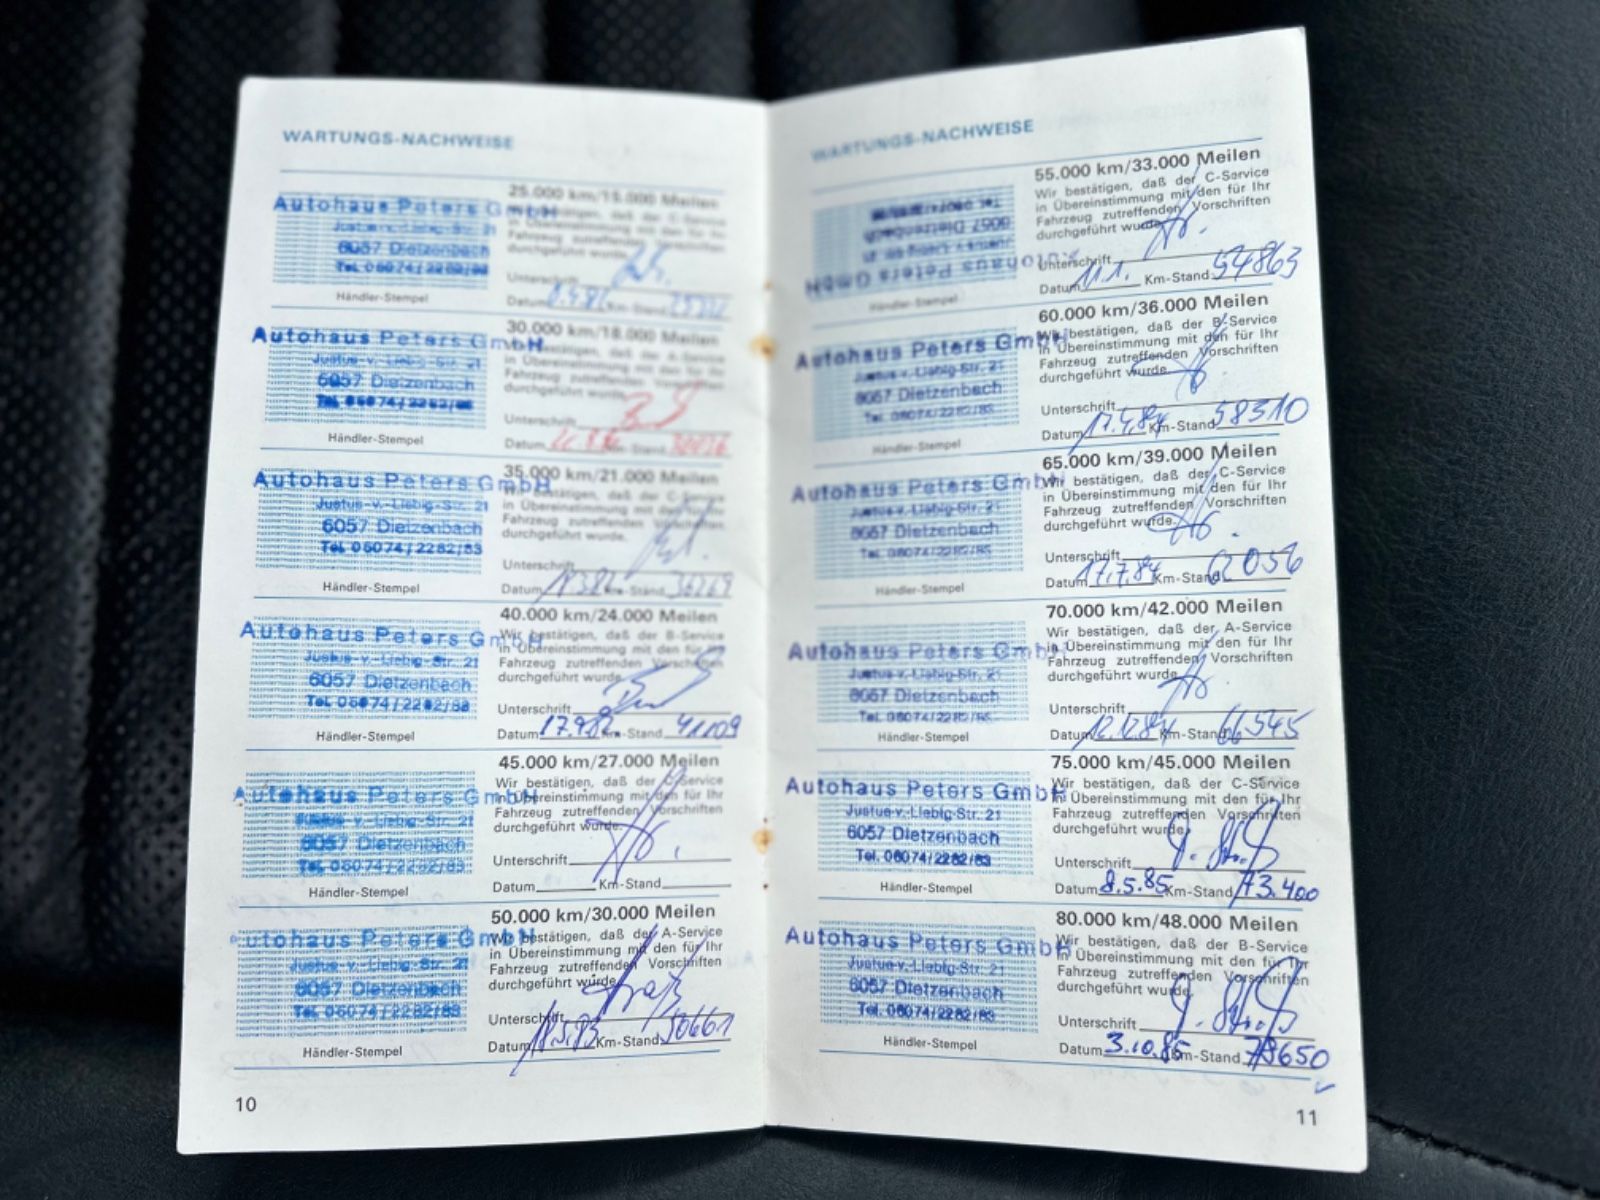 WARTUNGS-NACHWEISE
25.000 km/15.000 Meilen
Wir bestätigen, daß der C-Service
in Übereinstimmung mit den für Ihr
Fahrzeug zutreffenden Vorschriften
durchgeführt wurde.
Autohaus Peters GmbH
Justus-v.-Liebig-Str. 21
6057 Dietzenbach
Tel. 06074/2282/83
Unterschrift
Datum Km-Stand
Händler-Stempel
30.000 km/18.000 Meilen
Wir bestätigen, daß der A-Service
in Übereinstimmung mit den für Ihr
Fahrzeug zutreffenden Vorschriften
durchgeführt wurde.
Autohaus Peters GmbH
Justus-v.-Liebig-Str. 21
6057 Dietzenbach
Tel. 06074/2282/83
Unterschrift
Datum Km-Stand
Händler-Stempel
35.000 km/21.000 Meilen
Wir bestätigen, daß der C-Service
in Übereinstimmung mit den für Ihr
Fahrzeug zutreffenden Vorschriften
durchgeführt wurde.
Autohaus Peters GmbH
Justus-v.-Liebig-Str. 21
6057 Dietzenbach
Tel. 06074/2282/83
Unterschrift
Datum Km-Stand 36269
Händler-Stempel
40.000 km/24.000 Meilen
Wir bestätigen, daß der B-Service
in Übereinstimmung mit den für Ihr
Fahrzeug zutreffenden Vorschriften
durchgeführt wurde.
Autohaus Peters GmbH
Justus-v.-Liebig-Str. 21
6057 Dietzenbach
Tel. 06074/2282/83
Unterschrift
Datum 17.9.82 Km-Stand 41109
Händler-Stempel
45.000 km/27.000 Meilen
Wir bestätigen, daß der C-Service
in Übereinstimmung mit den für Ihr
Fahrzeug zutreffenden Vorschriften
durchgeführt wurde.
Autohaus Peters GmbH
Justus-v.-Liebig-Str. 21
6057 Dietzenbach
Tel. 06074/2282/83
Unterschrift
Datum Km-Stand
Händler-Stempel
50.000 km/30.000 Meilen
Wir bestätigen, daß der A-Service
in Übereinstimmung mit den für Ihr
Fahrzeug zutreffenden Vorschriften
durchgeführt wurde.
Autohaus Peters GmbH
Justus-v.-Liebig-Str. 21
6057 Dietzenbach
Tel. 06074/2282/83
Unterschrift
Datum 18.5.83 Km-Stand 50661
Händler-Stempel
10
WARTUNGS-NACHWEISE
55.000 km/33.000 Meilen
Wir bestätigen, daß der C-Service
in Übereinstimmung mit den für Ihr
Fahrzeug zutreffenden Vorschriften
durchgeführt wurde.
Autohaus Peters GmbH
Justus-v.-Liebig-Str. 21
6057 Dietzenbach
Tel. 06074/2282/83
Unterschrift
Datum 11.1. Km-Stand 54863
Händler-Stempel
60.000 km/36.000 Meilen
Wir bestätigen, daß der B-Service
in Übereinstimmung mit den für Ihr
Fahrzeug zutreffenden Vorschriften
durchgeführt wurde.
Autohaus Peters GmbH
Justus-v.-Liebig-Str. 21
6057 Dietzenbach
Tel. 06074/2282/83
Unterschrift
Datum 17.4.84 Km-Stand 58310
Händler-Stempel
65.000 km/39.000 Meilen
Wir bestätigen, daß der C-Service
in Übereinstimmung mit den für Ihr
Fahrzeug zutreffenden Vorschriften
durchgeführt wurde.
Autohaus Peters GmbH
Justus-v.-Liebig-Str. 21
6057 Dietzenbach
Tel. 06074/2282/83
Unterschrift
Datum 17.7.84 Km-Stand 62056
Händler-Stempel
70.000 km/42.000 Meilen
Wir bestätigen, daß der A-Service
in Übereinstimmung mit den für Ihr
Fahrzeug zutreffenden Vorschriften
durchgeführt wurde.
Autohaus Peters GmbH
Justus-v.-Liebig-Str. 21
6057 Dietzenbach
Tel. 06074/2282/83
Unterschrift
Datum 12.12.84 Km-Stand 66545
Händler-Stempel
75.000 km/45.000 Meilen
Wir bestätigen, daß der C-Service
in Übereinstimmung mit den für Ihr
Fahrzeug zutreffenden Vorschriften
durchgeführt wurde.
Autohaus Peters GmbH
Justus-v.-Liebig-Str. 21
6057 Dietzenbach
Tel. 06074/2282/83
Unterschrift
Datum 8.5.85 Km-Stand 73.400
Händler-Stempel
80.000 km/48.000 Meilen
Wir bestätigen, daß der B-Service
in Übereinstimmung mit den für Ihr
Fahrzeug zutreffenden Vorschriften
durchgeführt wurde.
Autohaus Peters GmbH
Justus-v.-Liebig-Str. 21
6057 Dietzenbach
Tel. 06074/2282/83
Unterschrift
Datum 3.10.85 Km-Stand 78650
Händler-Stempel
11